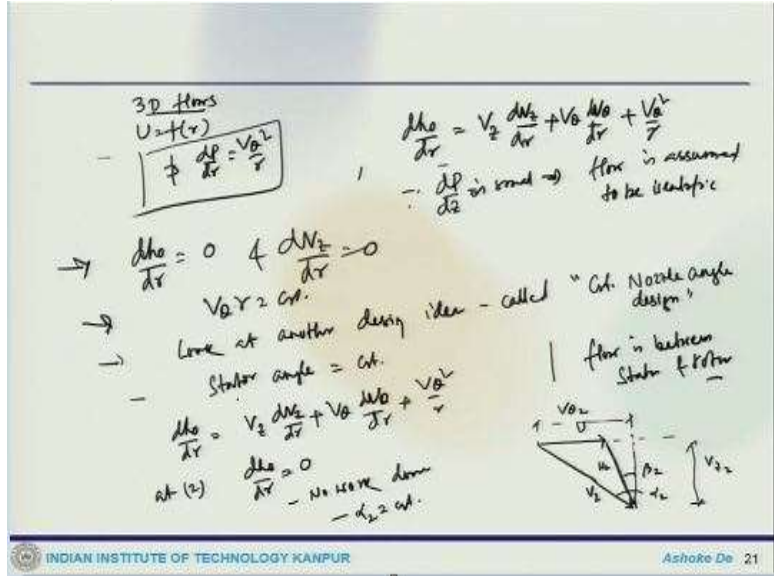 3D flows
U = f(r)
1/ρ dp/dr = Vθ²/r
dh₀/dr = Vz dVz/dr + Vθ dVθ/dr + Vθ²/r
∵ dp/dz is small ⇒ flow is assumed
to be isentropic
→ dh₀/dr = 0 & dVz/dr = 0
→ Vθ r = cst.
→ Look at another design idea - called "Cst. Nozzle angle
design"
- Stator angle = cst.
flow is between
Stator & Rotor
dh₀/dr = Vz dVz/dr + Vθ dVθ/dr + Vθ²/r
at (2) dh₀/dr = 0
- No work done
- α₂ = cst.
Vθ₂
U
V₂
β₂
α₂
Vz₂
INDIAN INSTITUTE OF TECHNOLOGY KANPUR
Ashoke De 21